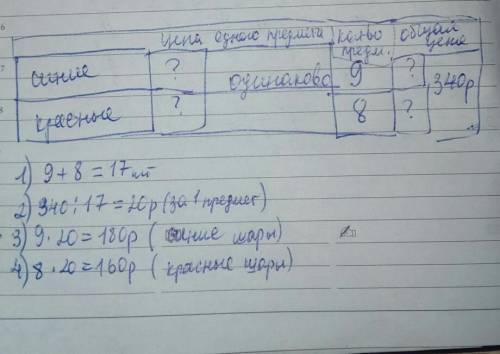 цена одного предмета кол-во предм. общая цена
синие ? одинаково 9 ? 340р
красные ? 8 ?
1) 9+8=17шт
2) 340:17=20р (за 1 предмет)
3) 9·20=180р (синие шары)
4) 8·20=160р (красные шары)